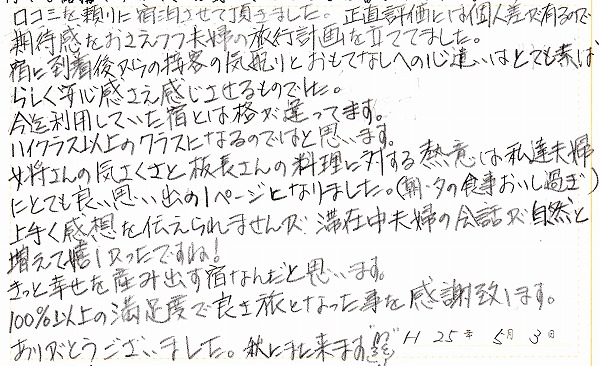 口コミを頼りに宿泊させて頂きました。正直評価には個人差が有るので
期待感をおさえつつ夫婦の旅行計画を立ててました。
宿に到着後からの接客の気配りとおもてなしへの心遣いはとても素ば
らしく安心感さえ感じさせるものでした。
今迄利用していた宿とは格が違ってます。
ハイクラス以上のクラスになるのではと思います。
女将さんの気さくさと板長さんの料理に対する熱意は私達夫婦
にとても良い思い出の1ページとなりました。(朝・夕の食事おいし過ぎ)
上手く感想を伝えられませんが滞在中夫婦の会話が自然と
増えて嬉しかったですね!
きっと幸せを産み出す宿なんだと思います。
100%以上の満足度で良き旅となった事を感謝致します。
ありがとうございました。秋にまた来ます H25年5月3日